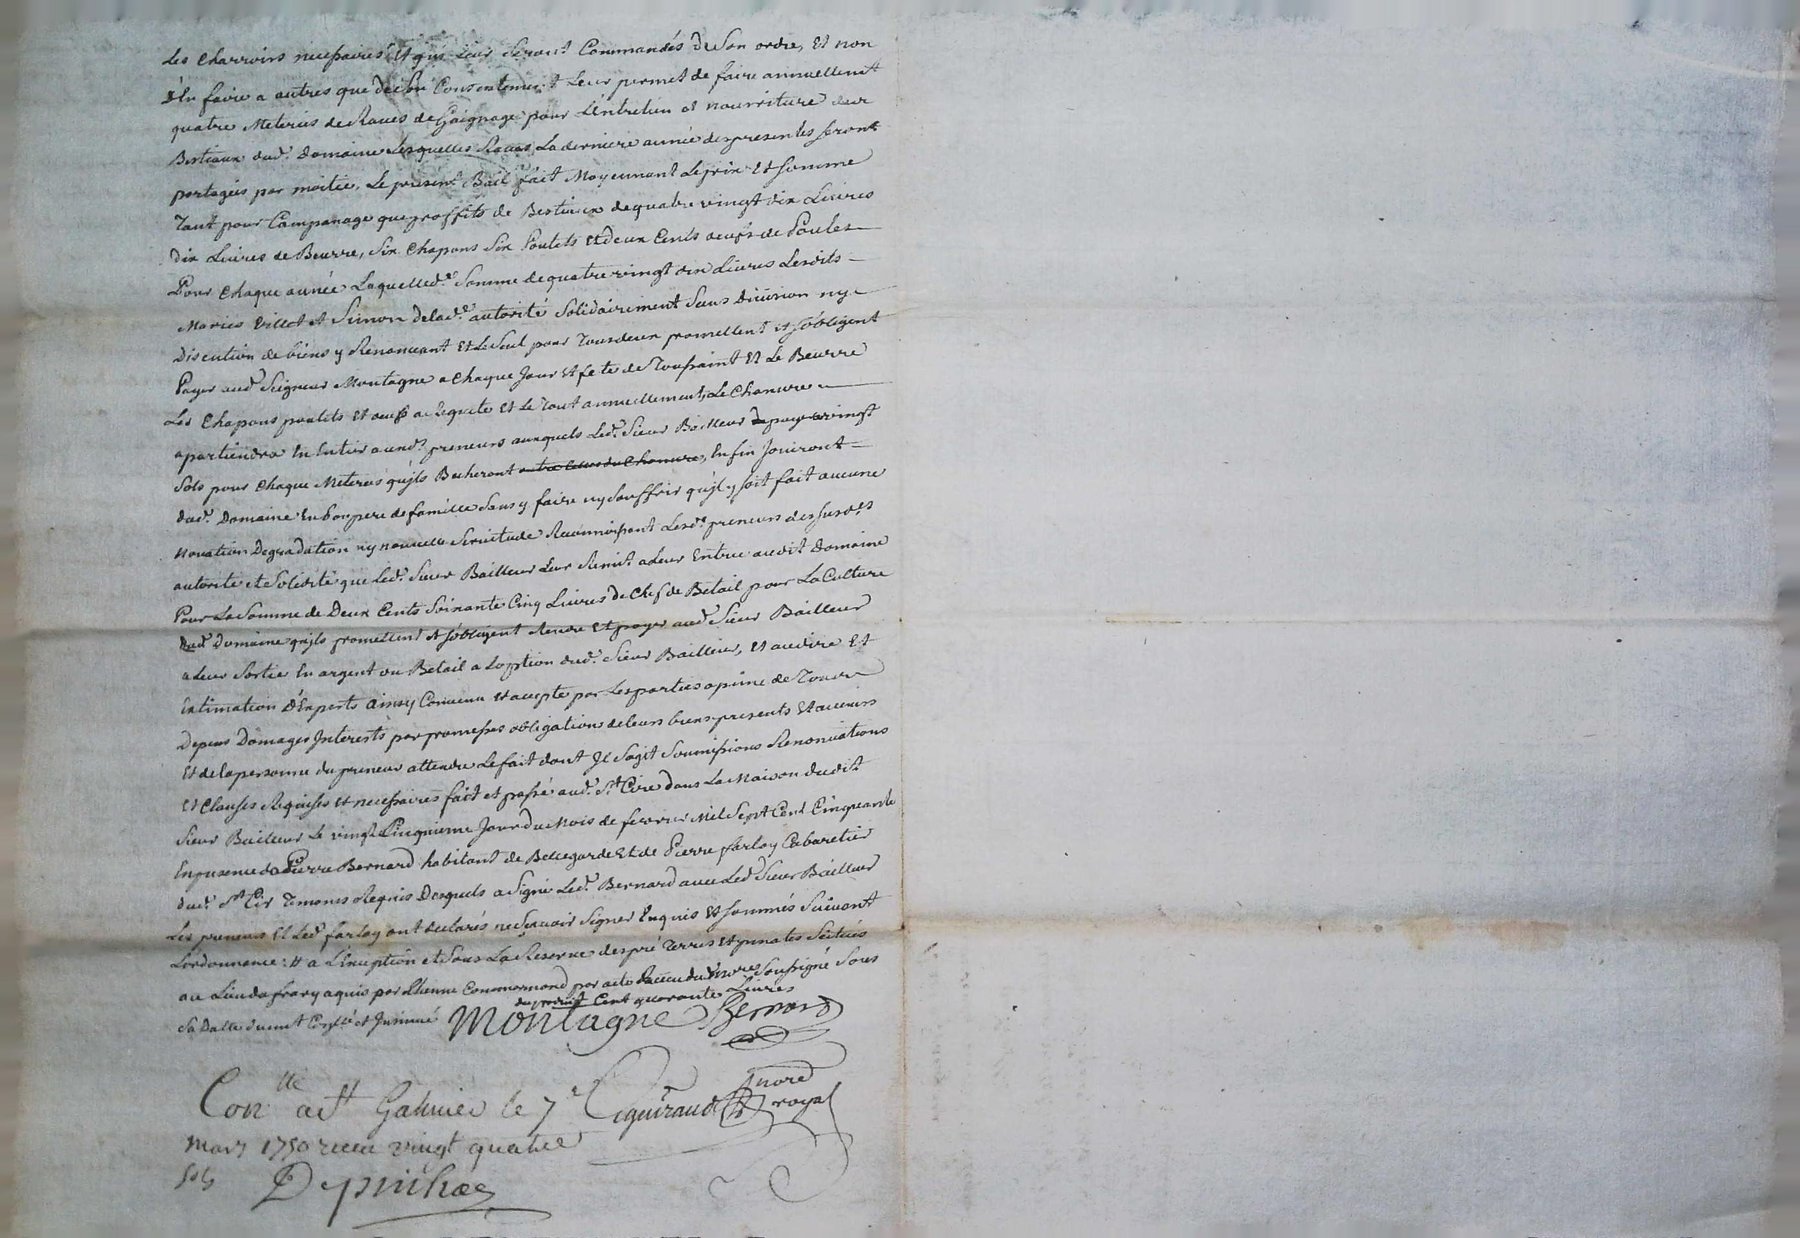 les charroirs necessaires et qui leur seront Commandés de Son ordre, et non
d'En faire a autres que de son Consentement leur permet de faire annuellement
quatre Meterées de Raves de Gaignage pour L'entretien et nourriture des
Bestiaux dud.t Domaine lesquelles Raves La derniere année des presentes seront
partagées par moitié, Le présent Bail fait Moyennant le prix et somme
Tant pour Campanage que proffits de Bestiaux de quatre vingt dix Livres
dix Livres de Beurre, six Chapons six Poulets et deux Cents oeufs de Poules
Pour Chaque année Laquelled.e Somme de quatre vingt dix Livres Lesdits
Mariés Villot et Simon de lad.e autorité Solidairement Sans Division ny
discution de biens y Renoncant et le Seul pour Tous deux promettent et s'obligent
Payer aud.t Seigneur Montagne a Chaque Jour et fete de Toussaint et Le Beurre
Les Chapons poulets et oeufs a Requete et le Tout annuellement, Le Chanvre
apartiendra En Entier auxd.s preneurs auxquels led.t Sieur Bailleur payera vingt
Sols pour Chaque Meterées qu'ils Becheront, Enfin Jouiront
dud.t Domaine En bon pere de famille Sans y faire ny souffrir qu'il y soit fait aucune
novation Degradation ny nouvelle Servitude Reconnoissant Lesd.s preneurs des susd.es
autorité et Solidité que led.t Sieur Bailleur leur Remit a leur Entrée audit Domaine
Pour La Somme de Deux Cents Soixante Cinq Livres de Chef de Betail pour La Culture
dud.t Domaine qu'ils promettent et s'obligent Rendre et payer aud.t Sieur Bailleur
a leur Sortie En argent ou Betail a L'option dud.t Sieur Bailleur, et au dire et
Estimation d'Experts ainsy Convenu et accepté par les parties a peine de Tous
Depens Domages Interets par promesses obligations de leurs biens presents et avenirs
et de la personne du preneur attendu Le fait dont Il Sagit Soumissions Renonciations
et Clauses Requises et necessaires fait et passé aud.t S.t Cire dans La Maison dudit
Sieur Bailleur le vingt Cinquieme Jour du Mois de fevrier Mil Sept Cent Cinquante
En presence de Pierre Bernard habitant de Bellegarde et de Pierre farlay Cabaretier
dud.t S.t Cir Temoins Requis Desquels a Signé led.t Bernard avec led.t Sieur Bailleur
Les preneurs et led.t farlay ont declarés ne Scavoir signer Enquis et sommés Suivant
L'ordonnance: # a L'Exception et Sous La Reserve des pré Terres et Situés
au Lieu de frary aquis par Etienne par acte Receu du no.re Soussigné Sous
Cent quarante Livres
Sa Datte duement Con.llé et Insinué Montagne Bernard
Con.llé a S.t Galmier le 7.e Giguiraud no.re royal
Mars 1750 receu vingt quatre
sols